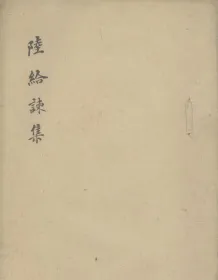 陸給諫集